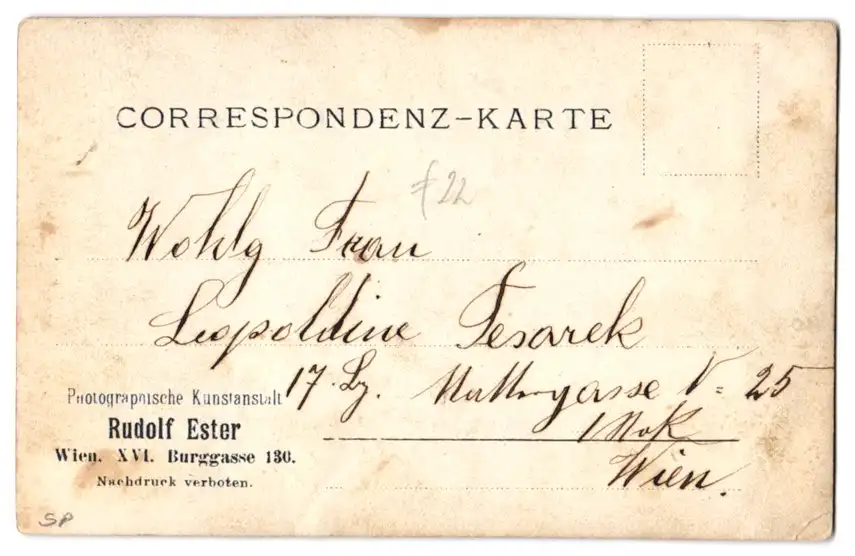 CORRESPONDENZ-KARTE
22
Wohlg Frau
Leopoldine Tesarek
17. Bz. gasse N= 25
1 Stok
Wien.
Photographische Kunstanstalt
Rudolf Ester
Wien. XVI. Burggasse 130.
Nachdruck verboten.
SP